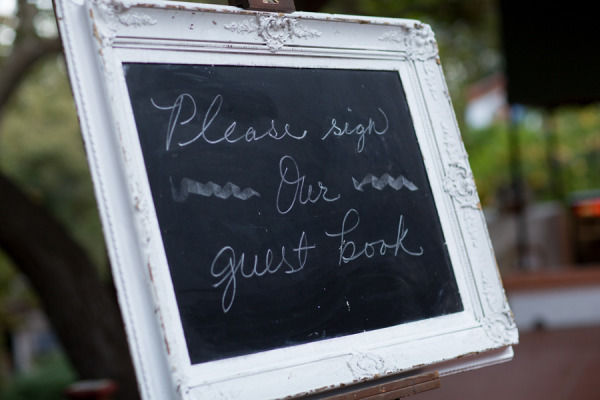 Please sign
Our
guest book